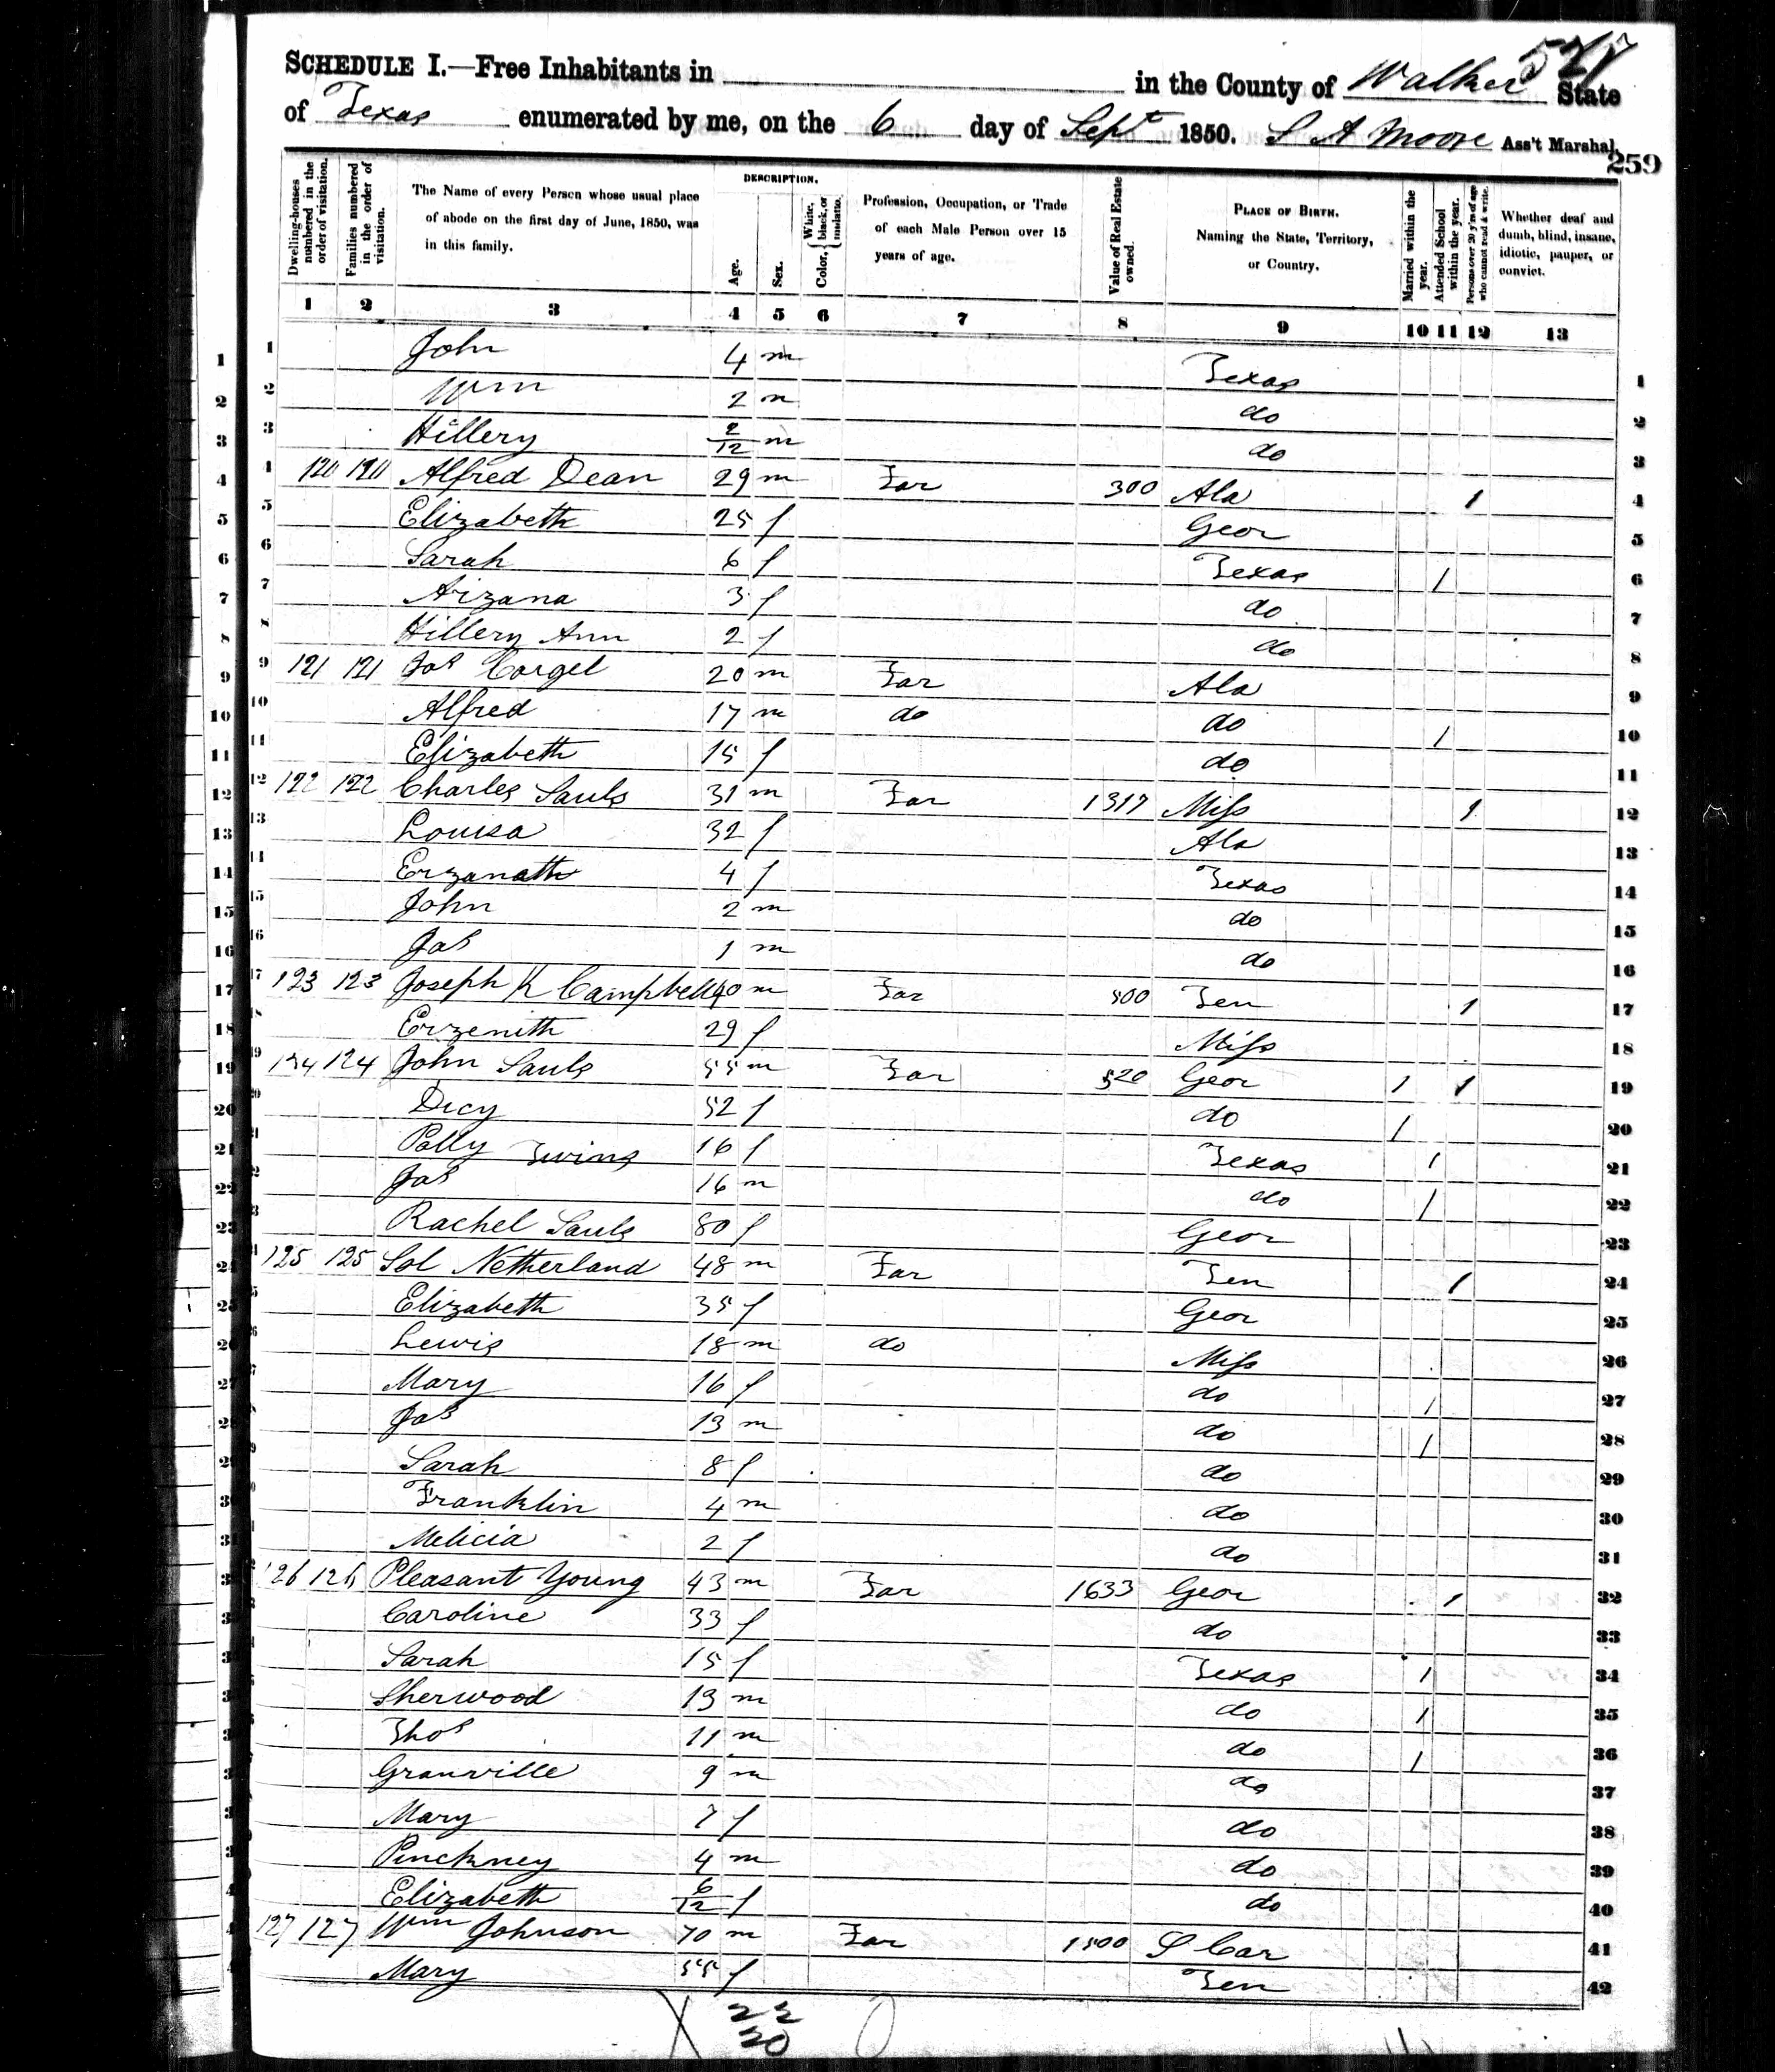 527
SCHEDULE I.—Free Inhabitants in in the County of Walker State
of Texas enumerated by me, on the 6 day of Sept 1850. S A Moore Ass't Marshal.
259
Dwelling-houses numbered in the order of visitation. Families numbered in the order of visitation. The Name of every Person whose usual place of abode on the first day of June, 1850, was in this family. DESCRIPTION. Age. Sex. Color, { White, black, or mulatto. Profession, Occupation, or Trade of each Male Person over 15 years of age. Value of Real Estate owned. PLACE OF BIRTH. Naming the State, Territory, or Country. Married within the year. Attended School within the year. Persons over 20 y'rs of age who cannot read & write. Whether deaf and dumb, blind, insane, idiotic, pauper, or convict.
1 2 3 4 5 6 7 8 9 10 11 12 13
1 1 John 4 m Texas 1
2 2 Wm 2 m do 2
3 3 Hillery 2/12 m do 3
4 4 120 120 Alfred Dean 29 m Far 300 Ala 1 4
5 5 Elizabeth 25 f Geor 5
6 6 Sarah 6 f Texas 1 6
7 7 Arizana 3 f do 7
8 8 Hillery Ann 2 f do 8
9 9 121 121 Jas Cargel 20 m Far Ala 9
10 10 Alfred 17 m do do 1 10
11 11 Elizabeth 15 f do 11
12 12 122 122 Charles Sauls 31 m Far 1317 Miss 1 12
13 13 Louisa 32 f Ala 13
14 14 Erzanath 4 f Texas 14
15 15 John 2 m do 15
16 16 Jas 1 m do 16
17 17 123 123 Joseph K Campbell 40 m Far 500 Ten 1 17
18 18 Erzenith 29 f Miss 18
19 19 124 124 John Sauls 55 m Far 520 Geor 1 1 19
20 20 Dicy 52 f do 1 20
21 21 Polly Twins 16 f Texas 1 21
22 2 Jas 16 m do 1 22
23 3 Rachel Sauls 80 f Geor 23
24 4 125 125 Sol Netherland 48 m Far Ten 1 24
25 5 Elizabeth 35 f Geor 25
26 6 Lewis 18 m do Miss 26
27 7 Mary 16 f do 1 27
28 Jas 13 m do 1 28
29 9 Sarah 8 f do 29
3 0 Franklin 4 m do 30
31 1 Melicia 2 f do 31
3 126 126 Pleasant Young 43 m Far 1633 Geor 1 32
3 Caroline 33 f do 33
3 Sarah 15 f Texas 1 34
3 Sherwood 13 m do 1 35
3 Thos 11 m do 1 36
3 Granville 9 m do 37
3 Mary 7 f do 38
3 Pinckney 4 m do 39
4 Elizabeth 6/12 f do 40
4 127 127 Wm Johnson 70 m Far 1500 S Car 41
4 Mary 55 f Ten 42
X 22
20